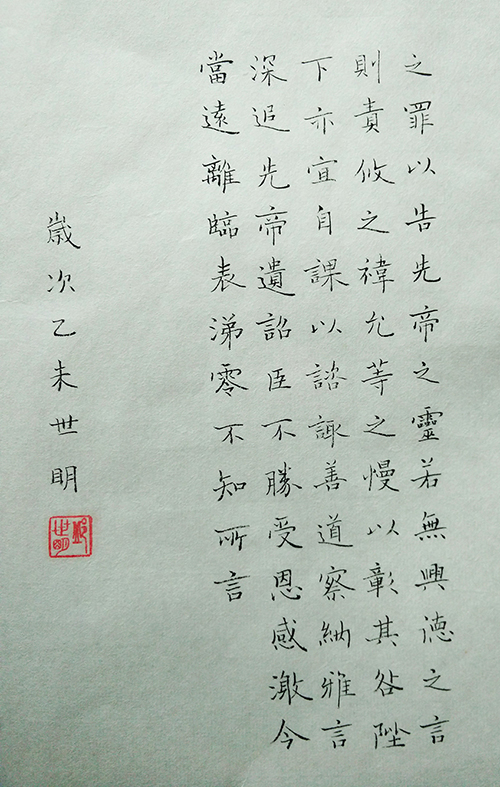 之罪以告先帝之靈若無興德之言
則責攸之禕允等之慢以彰其咎陛
下亦宜自課以諮諏善道察納雅言
深追先帝遺詔臣不勝受恩感激今
當遠離臨表涕零不知所言
歲次乙未世明
世明